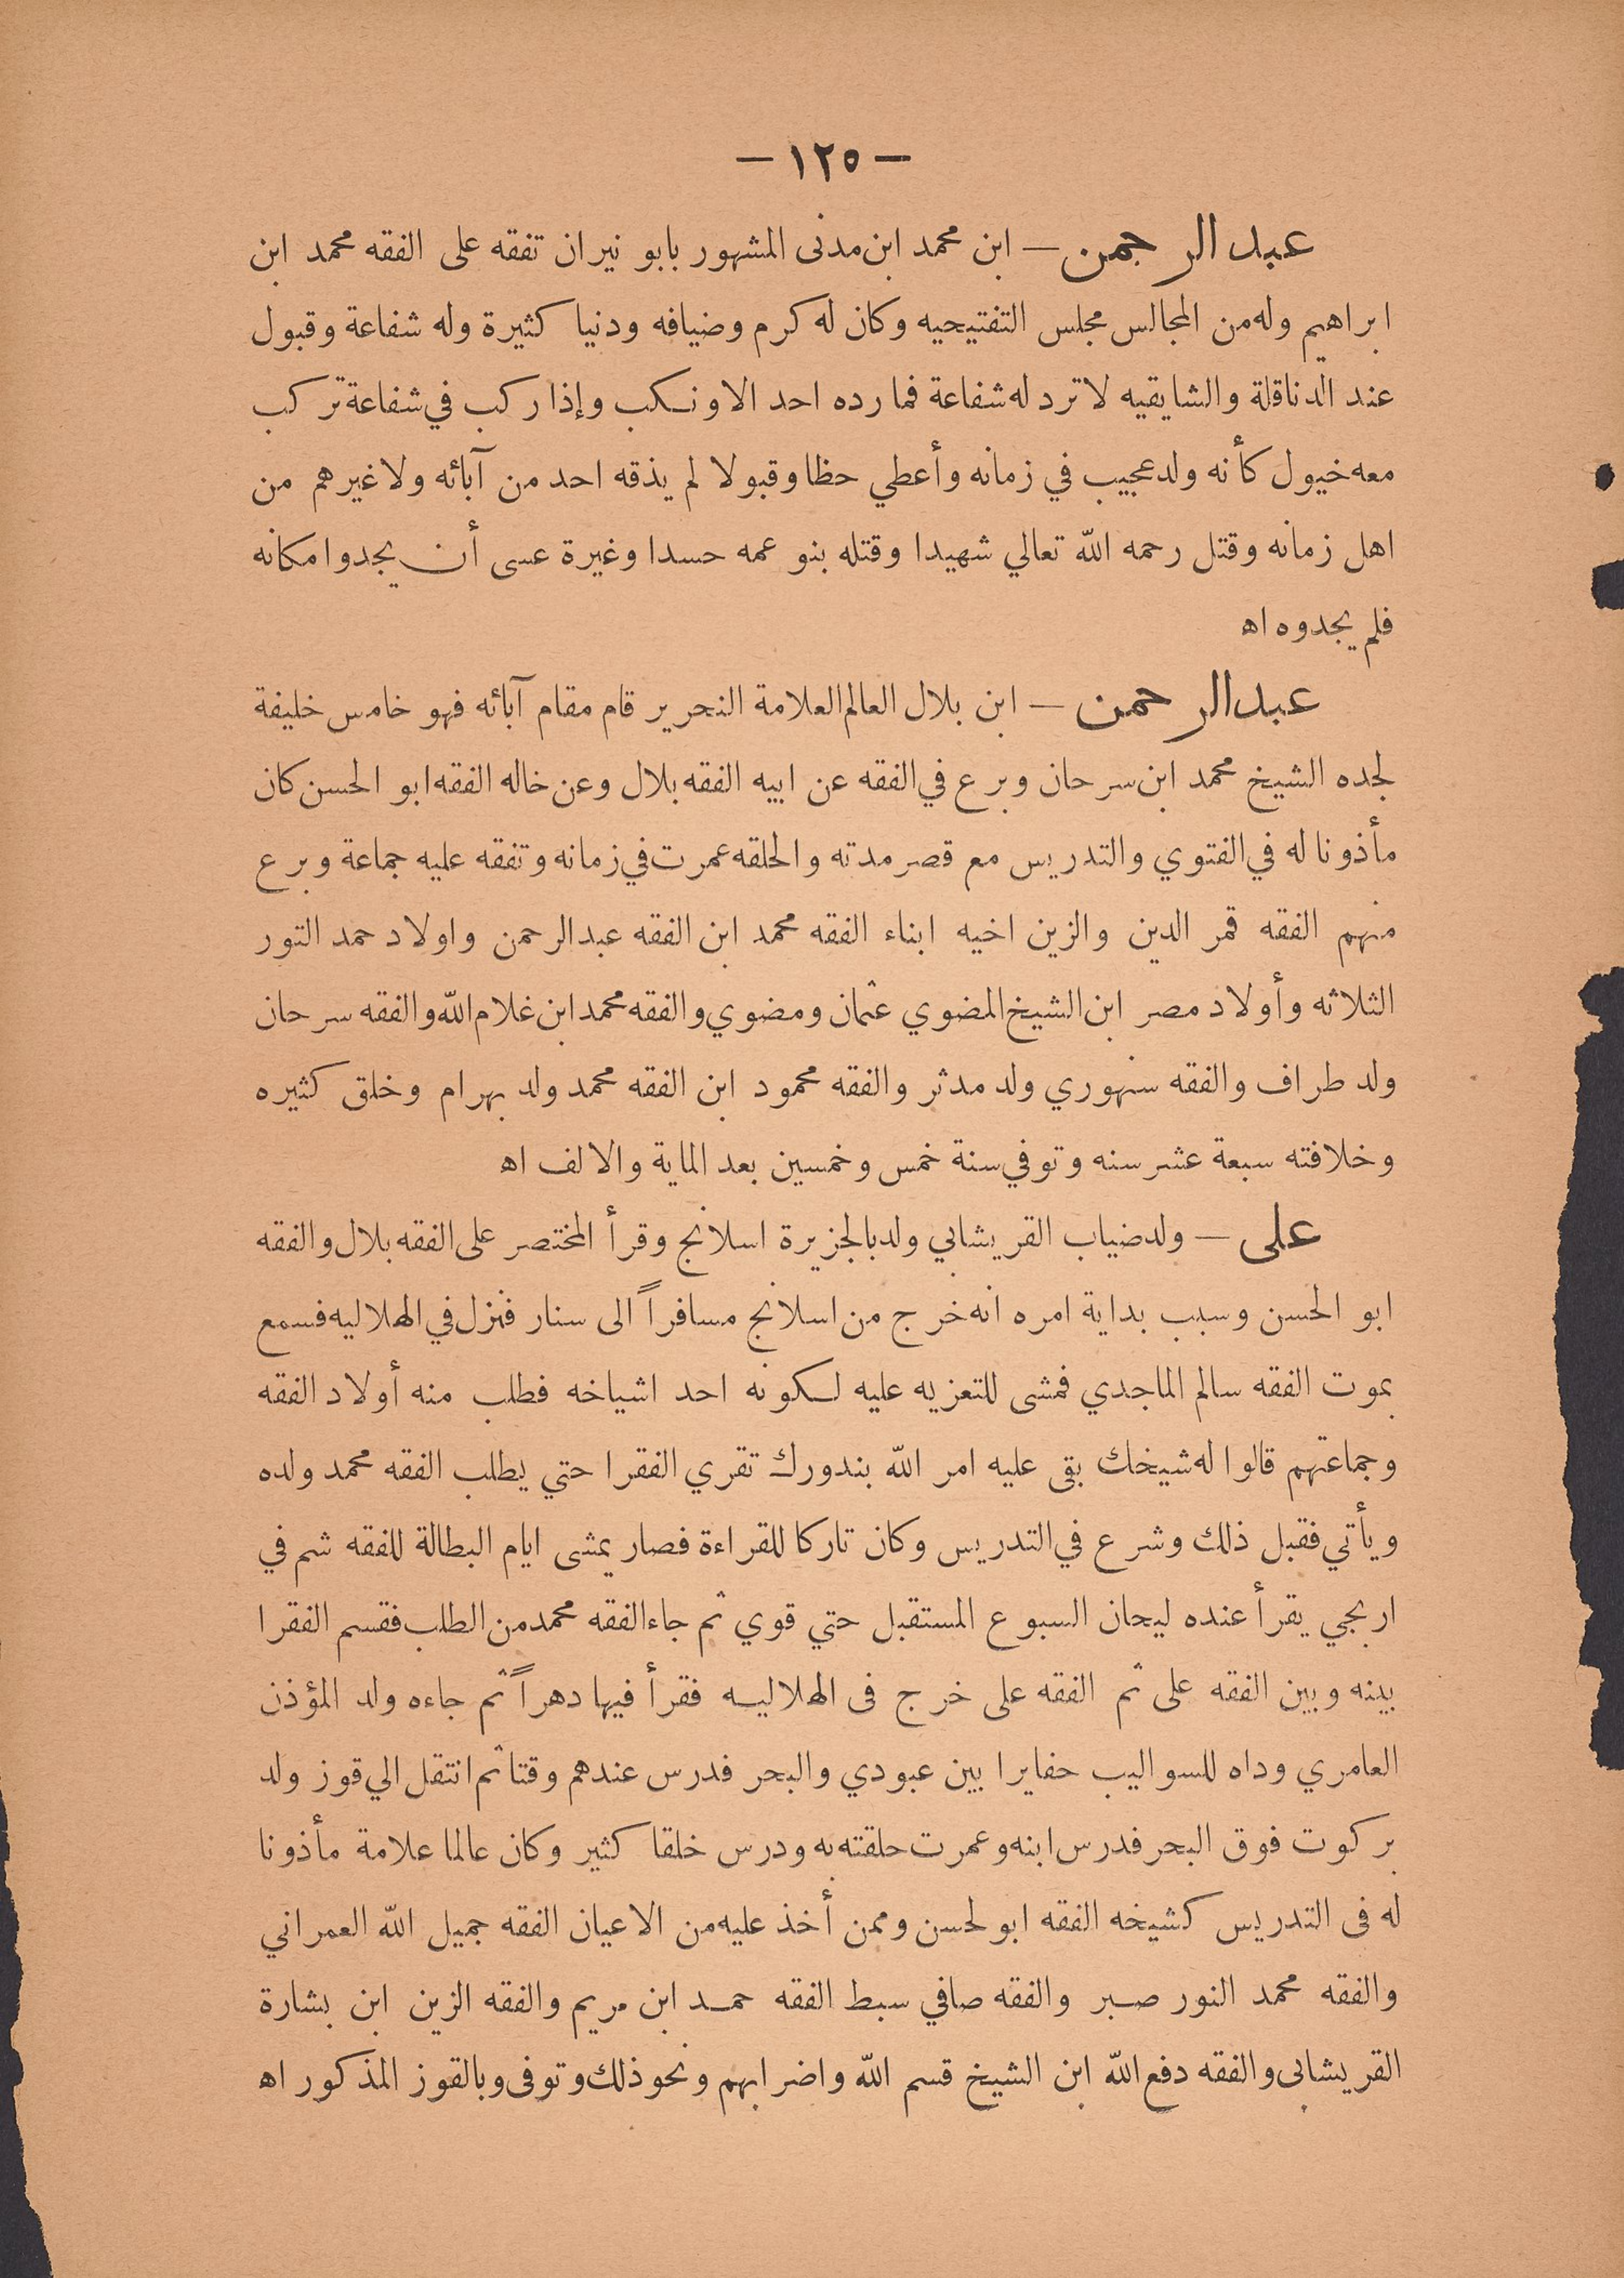 — ١٢٥ —
عبد الرحمن — ابن محمد ابن مدنى المشهور بابو نيران تفقه على الفقه محمد ابن
ابراهيم وله من المجالس مجلس التفتيحيه وكان له كرم وضيافه ودنيا كثيرة وله شفاعة وقبول
عند الدناقلة والشايقيه لا ترد له شفاعة فما رده احد الا ونكب وإذا ركب في شفاعة تركب
معه خيول كأنه ولد عجيب في زمانه وأعطي حظا وقبولا لم يذقه احد من آبائه ولا غيرهم من
اهل زمانه وقتل رحمه الله تعالي شهيدا وقتله بنو عمه حسدا وغيرة عسى أن يجدوا مكانه
فلم يجدوه اه
عبد الرحمن — ابن بلال العالم العلامة النحرير قام مقام آبائه فهو خامس خليفة
لجده الشيخ محمد ابن سرحان وبرع في الفقه عن ابيه الفقه بلال وعن خاله الفقه ابو الحسن كان
مأذونا له في الفتوي والتدريس مع قصر مدته والحلقه عمرت في زمانه وتفقه عليه جماعة وبرع
منهم الفقه قمر الدين والزين اخيه ابناء الفقه محمد ابن الفقه عبد الرحمن واولاد حمد التور
الثلاثه وأولاد مصر ابن الشيخ المضوي عثمان ومضوي والفقه محمد ابن غلام الله والفقه سرحان
ولد طراف والفقه سنهوري ولد مدثر والفقه محمود ابن الفقه محمد ولد بهرام وخلق كثيره
وخلافته سبعة عشر سنه وتوفي سنة خمس وخمسين بعد الماية والالف اه
على — ولد ضياب القريشابي ولد بالجزيرة اسلانج وقرأ المختصر على الفقه بلال والفقه
ابو الحسن وسبب بداية امره انه خرج من اسلانج مسافراً الى سنار فنزل في الهلاليه فسمع
بموت الفقه سالم الماجدي فمشى للتعزيه عليه لكونه احد اشياخه فطلب منه أولاد الفقه
وجماعتهم قالوا له شيخك بقى عليه امر الله بندورك تقري الفقرا حتي يطلب الفقه محمد ولده
ويأتي فقبل ذلك وشرع في التدريس وكان تاركا للقراءة فصار يمشى ايام البطالة للفقه شم في
اربجي يقرأ عنده ليحان السبوع المستقبل حتي قوي ثم جاء الفقه محمد من الطلب فقسم الفقرا
بينه وبين الفقه على ثم الفقه على خرج فى الهلاليه فقرأ فيها دهراً ثم جاءه ولد المؤذن
العامري وداه للسواليب حفايرا بين عبودي والبحر فدرس عندهم وقتا ثم انتقل الي قوز ولد
بركوت فوق البحر فدرس ابنه وعمرت حلقته به ودرس خلقا كثير وكان عالما علامة مأذونا
له فى التدريس كشيخه الفقه ابو لحسن وممن أخذ عليه من الاعيان الفقه جميل الله العمراني
والفقه محمد النور صبر والفقه صافي سبط الفقه حمد ابن مريم والفقه الزين ابن بشارة
القريشابى والفقه دفع الله ابن الشيخ قسم الله واضرابهم ونحو ذلك وتوفى وبالقوز المذكور اه